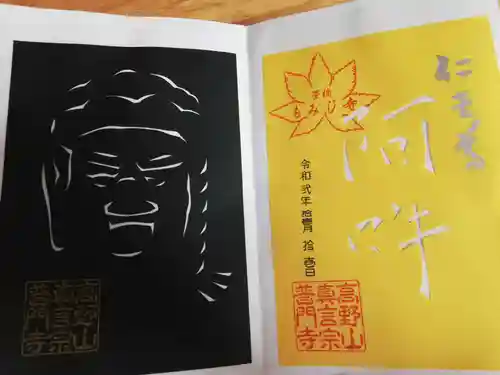 仁王尊
阿吽
もみじ寺
令和弐年拾壹月拾壱日
高野山
真言宗
普門寺
高野山
真言宗
普門寺